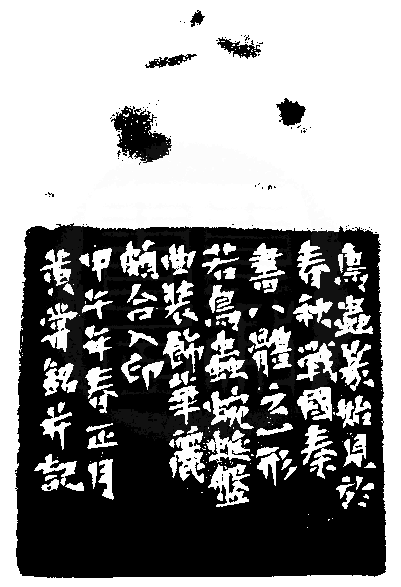 鳥蟲篆始見於
春秋戰國秦
書八體之一形
若鳥蟲蜿蜒盤
曲裝飾華麗
頗合入印
甲午年春正月
黄嘗銘并記